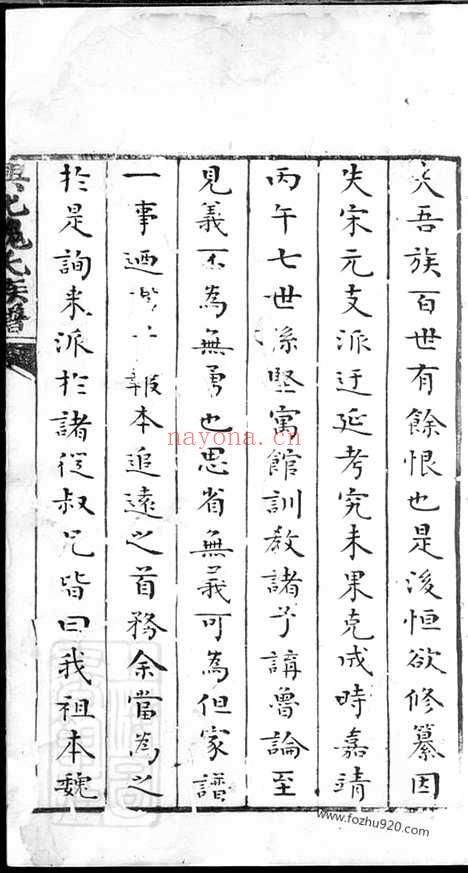 失吾族百世有餘恨也是後恒欲修纂因
失宋元支派迂延考究未果克成時嘉靖
丙午七世孫堅寓館訓教諸子講魯論至
見義不為無勇也思省無義可為但家譜
一事迺報本追遠之首務余當為之
於是詢来派於諸從叔兄皆曰我祖本魏
興化魏氏族譜
nayona.cn
www.fozhu920.com